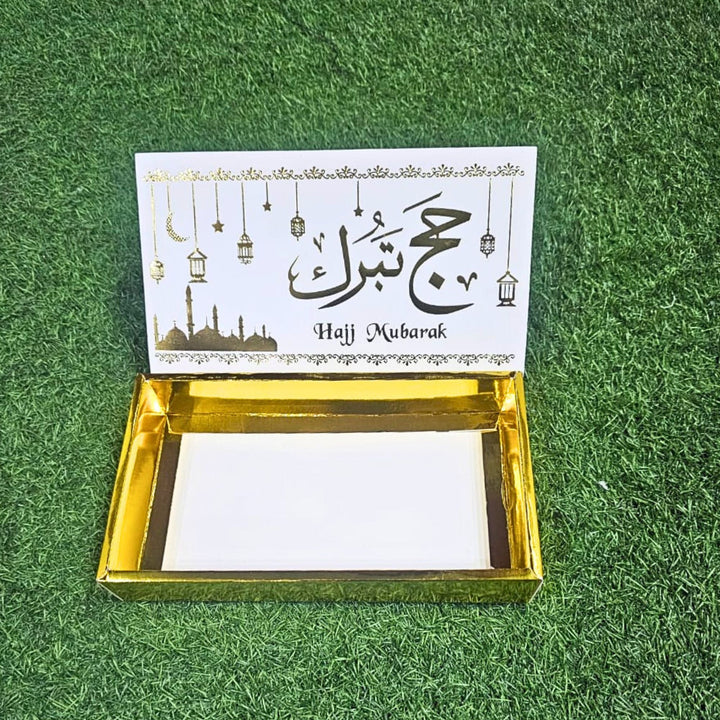 حج تَبُرك
Hajj Mubarak